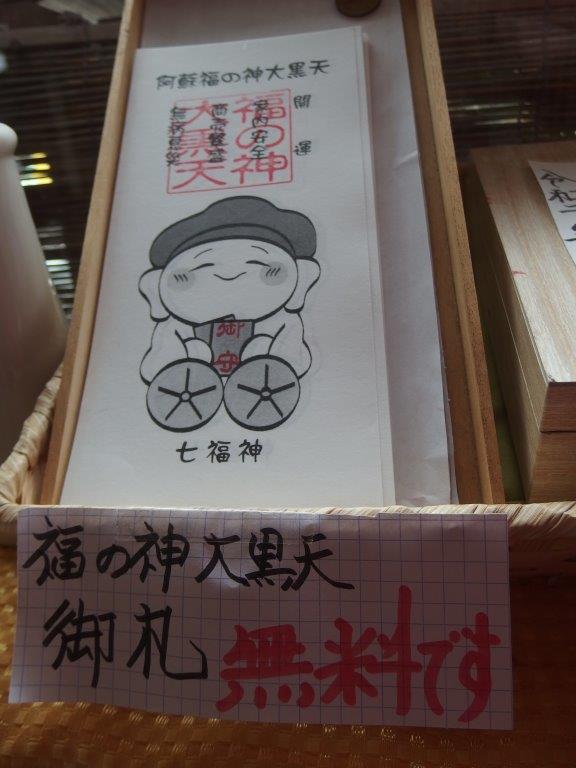 阿蘇福の神大黒天
開運
福の神
大黒天
家内安全
商売繁盛
御守
七福神
福の神大黒天
御札 無料です
令和二